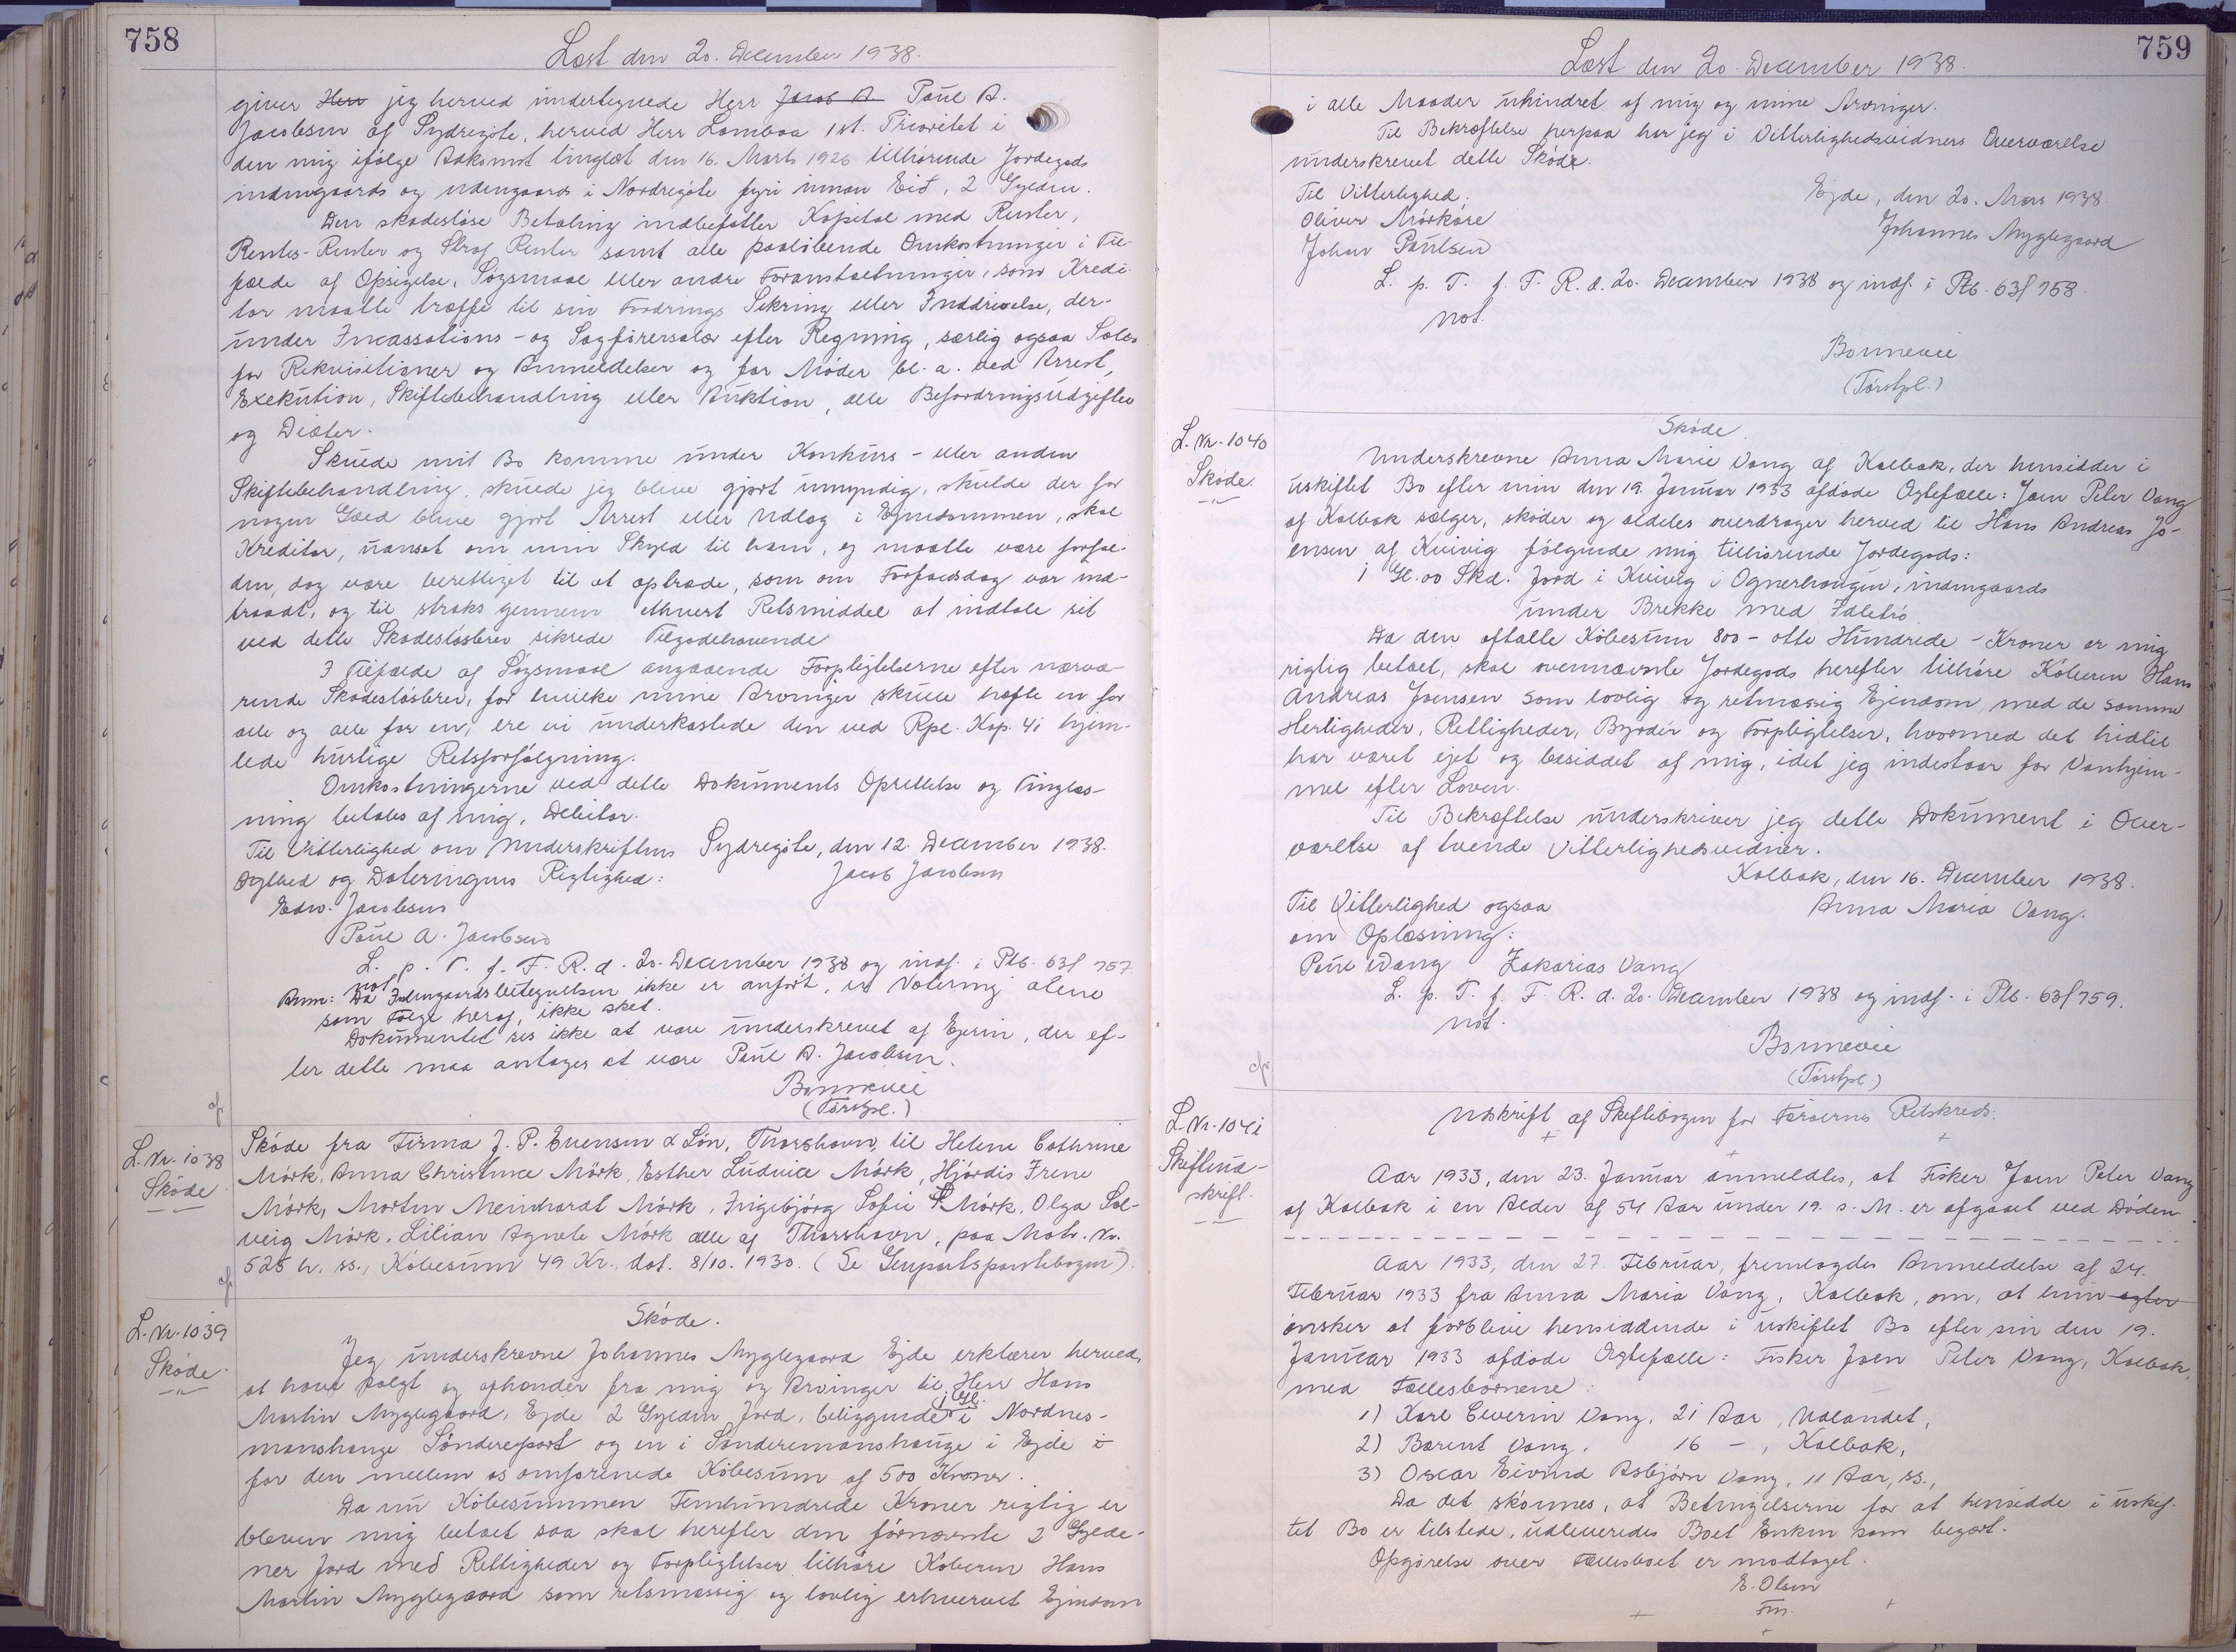 758
Læst den 20. December 1938.
giver Herr jeg herved undertegnede Herr Jacob A. Poul A.
Jacobsen af Sydregöte, herved Herr Lamboa 1st. Prioritet i
den mig ifølge Adkomst tinglæst den 16. Marts 1926 tilhørende Jordegods
indengaards og udengaards i Nordregöte fyri innan Eid, 2 Gylden.
Den skadesløse Betaling indbefatter Kapital med Renter,
Rentes-Renter og Straf Renter samt alle paaløbende Omkostninger i Til-
fælde af Opsigelse, Søgsmaal eller andre Foranstaltninger, som Kredi-
tor maatte træffe til sin Fordrings Sikring eller Inddrivelse, der-
under Incassations- og Sagførersalær efter Regning, særlig ogsaa Salær
for Rekvisitioner og Anmeldelser og for Møder bl. a. ved Arrest,
Exekution, Skiftebehandling eller Auktion, alle Befordringsudgifter
og Diæter.
Skulde mit Bo komme under Konkurs- eller anden
Skiftebehandling, skulde jeg blive gjort umyndig, skulde der for
nogen Gæld blive gjort Arrest eller Udlæg i Ejendommen, skal
Kreditor, uanset om min Skyld til ham, ej maatte være forfal-
den, dog være berettiget til at optræde, som om Forfaldsdag var ind-
traadt, og til straks gennem ethvert Retsmiddel at indtale sit
ved dette Skadesløsbrev sikrede Tilgodehavende
I Tilfælde af Søgsmaal angaaende Forpligtelserne efter nærvæ-
rende Skadesløsbrev, for hvilke mine Arvinger skulle hæfte en for
alle og alle for en, ere vi underkastede den ved Rpl. Kap. 41 hjem-
lede hurtige Retsforfølgning.
Omkostningerne ved dette Dokuments Oprettelse og Tinglæs-
ning betales af mig, Debitor.
Til Vitterlighed om Underskriftens Sydregöte, den 12. December 1938.
Ægthed og Dateringens Rigtighed: Jacob Jacobsen
Edw. Jacobsen
Poul A. Jacobsen
L. p. T. f. F. R. d. 20. December 1938 og indf. i Ptb. 63f 757.
not.
Anm: Da Indengaardsbetegnelsen ikke er anført, er Notering alene
som Følge heraf, ikke sket.
Dokumentet ses ikke at være underskrevet af Ejeren, der ef-
ter dette maa antages at være Poul A. Jacobsen.
Bonnevie
(Førstfol.)
L. Nr. 1038
Skøde
Skøde fra Firma J. P. Evensen & Søn, Thorshavn, til Helene Cathrine
Mörk, Anna Christence Mörk, Esther Ludvice Mörk, Hjördis Irene
Mörk, Morten Meinhardt Mörk, Ingebjörg Sofie Mörk, Olga Sol-
veig Mörk, Lilian Agnete Mörk alle af Thorshavn, paa Matr. Nr.
525 h. ss., Købesum 49 Kr., dat. 8/10. 1930. (Se Genpartspantebogen).
L. Nr. 1039
Skøde.
Skøde.
Jeg underskrevne Johannes Mygglegaard Ejde erklærer herved,
at have solgt og afhænder fra mig og Arvinger til Herr Hans
Martin Mygglegaard, Ejde 2 Gylden Jord, beliggende (1 Gl. i Nordnes-
manshauge Söndrepart og en i Sandremanshauge i Ejde i
for den mellem os omforenede Købesum af 500 Kroner.
Da nu Købesummen Femhundrede Kroner rigtig er
bleven mig betalt saa skal herefter den førnævnte 2 Gylde-
ner Jord med Rettigheder og Forpligtelser tilhøre Køberen Hans
Martin Mygglegaard som retsmæssig og lovlig erhvervet Ejendom
759
Læst den 20. December 1938.
i alle Maader uhindret af mig og mine Arvinger.
Til Bekræftelse herpaa har jeg i Vitterlighedsvidners Overværelse
underskrevet dette Skøde.
Til Vitterlighed: Ejde, den 20. Mars 1938.
Oliver Mörköre Johannes Mygglegaard
Johan Poulsen
L. p. T. f. F. R. d. 20. December 1938 og indf. i Ptb. 63f 758.
not.
Bonnevie
(Førstfol.)
L. Nr. 1040
Skøde.
Skøde.
Underskrevne Anna Marie Vang af Kalbak, der hensidder i
uskiftet Bo efter min den 19. Januar 1933 afdøde Ægtefælle: Joen Peter Vang
af Kalbak sælger, skøder og aldeles overdrager herved til Hans Andreas Jo-
ensen af Kvivig følgende mig tilhørende Jordegods:
1 Gl. 00 Skd. Jord i Kvivig i Ognerhougen, indengaards
under Brekke med Idletrö.
Da den aftalte Købesum 800 - otte Hundrede - Kroner er mig
rigtig betalt, skal ovennævnte Jordegods herefter tilhøre Køberen Hans
Andreas Joensen som lovlig og retmæssig Ejendom, med de samme
Herligheder, Rettigheder, Byrder og Forpligtelser, hvormed det hidtil
har været ejet og besiddet af mig, idet jeg indestaar for Vanhjem-
mel efter Loven.
Til Bekræftelse underskriver jeg dette Dokument i Over-
værelse af tvende Vitterlighedsvidner.
Kalbak, den 16. December 1938.
Til Vitterlighed ogsaa Anna Maria Vang.
om Oplæsning:
Poul Wang Zakarias Vang
L. p. T. f. F. R. d. 20. December 1938 og indf. i Ptb. 63f 759.
not.
Bonnevie
(Førstfol.)
L. Nr. 1041
Skifteud-
skrift.
Udskrift af Skiftebogen for Færøernes Retskreds.
Aar 1933, den 23. Januar anmeldtes, at Fisker Joen Peter Vang
af Kalbak i en Alder af 54 Aar under 19. s. M. er afgaaet ved Døden
Aar 1933, den 27. Februar, fremlagdes Anmeldelse af 24.
Februar 1933 fra Anna Maria Vang, Kalbak, om, at hun agter
ønsker at forblive hensiddende i uskiftet Bo efter sin den 19.
Januar 1933 afdøde Ægtefælle: Fisker Joen Peter Vang, Kalbak,
med Fællesbørnene:
1) Karl Severin Vang, 21 Aar, Udlandet,
2) Barent Vang, 16 - , Kalbak,
3) Oscar Eivind Asbjørn Vang, 11 Aar, ss.,
Da det skønnes, at Betingelserne for at hensidde i uskif-
tet Bo er tilstede, udleveredes Boet Enken som begært.
Opgørelse over Fællesboet er modtaget.
E. Olsen
Fm.